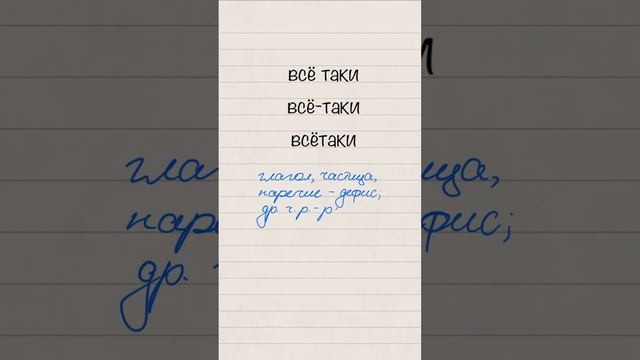 всё таки
всё-таки
всётаки
глагол, частица,
наречие - дефис;
др. ч. р. - р